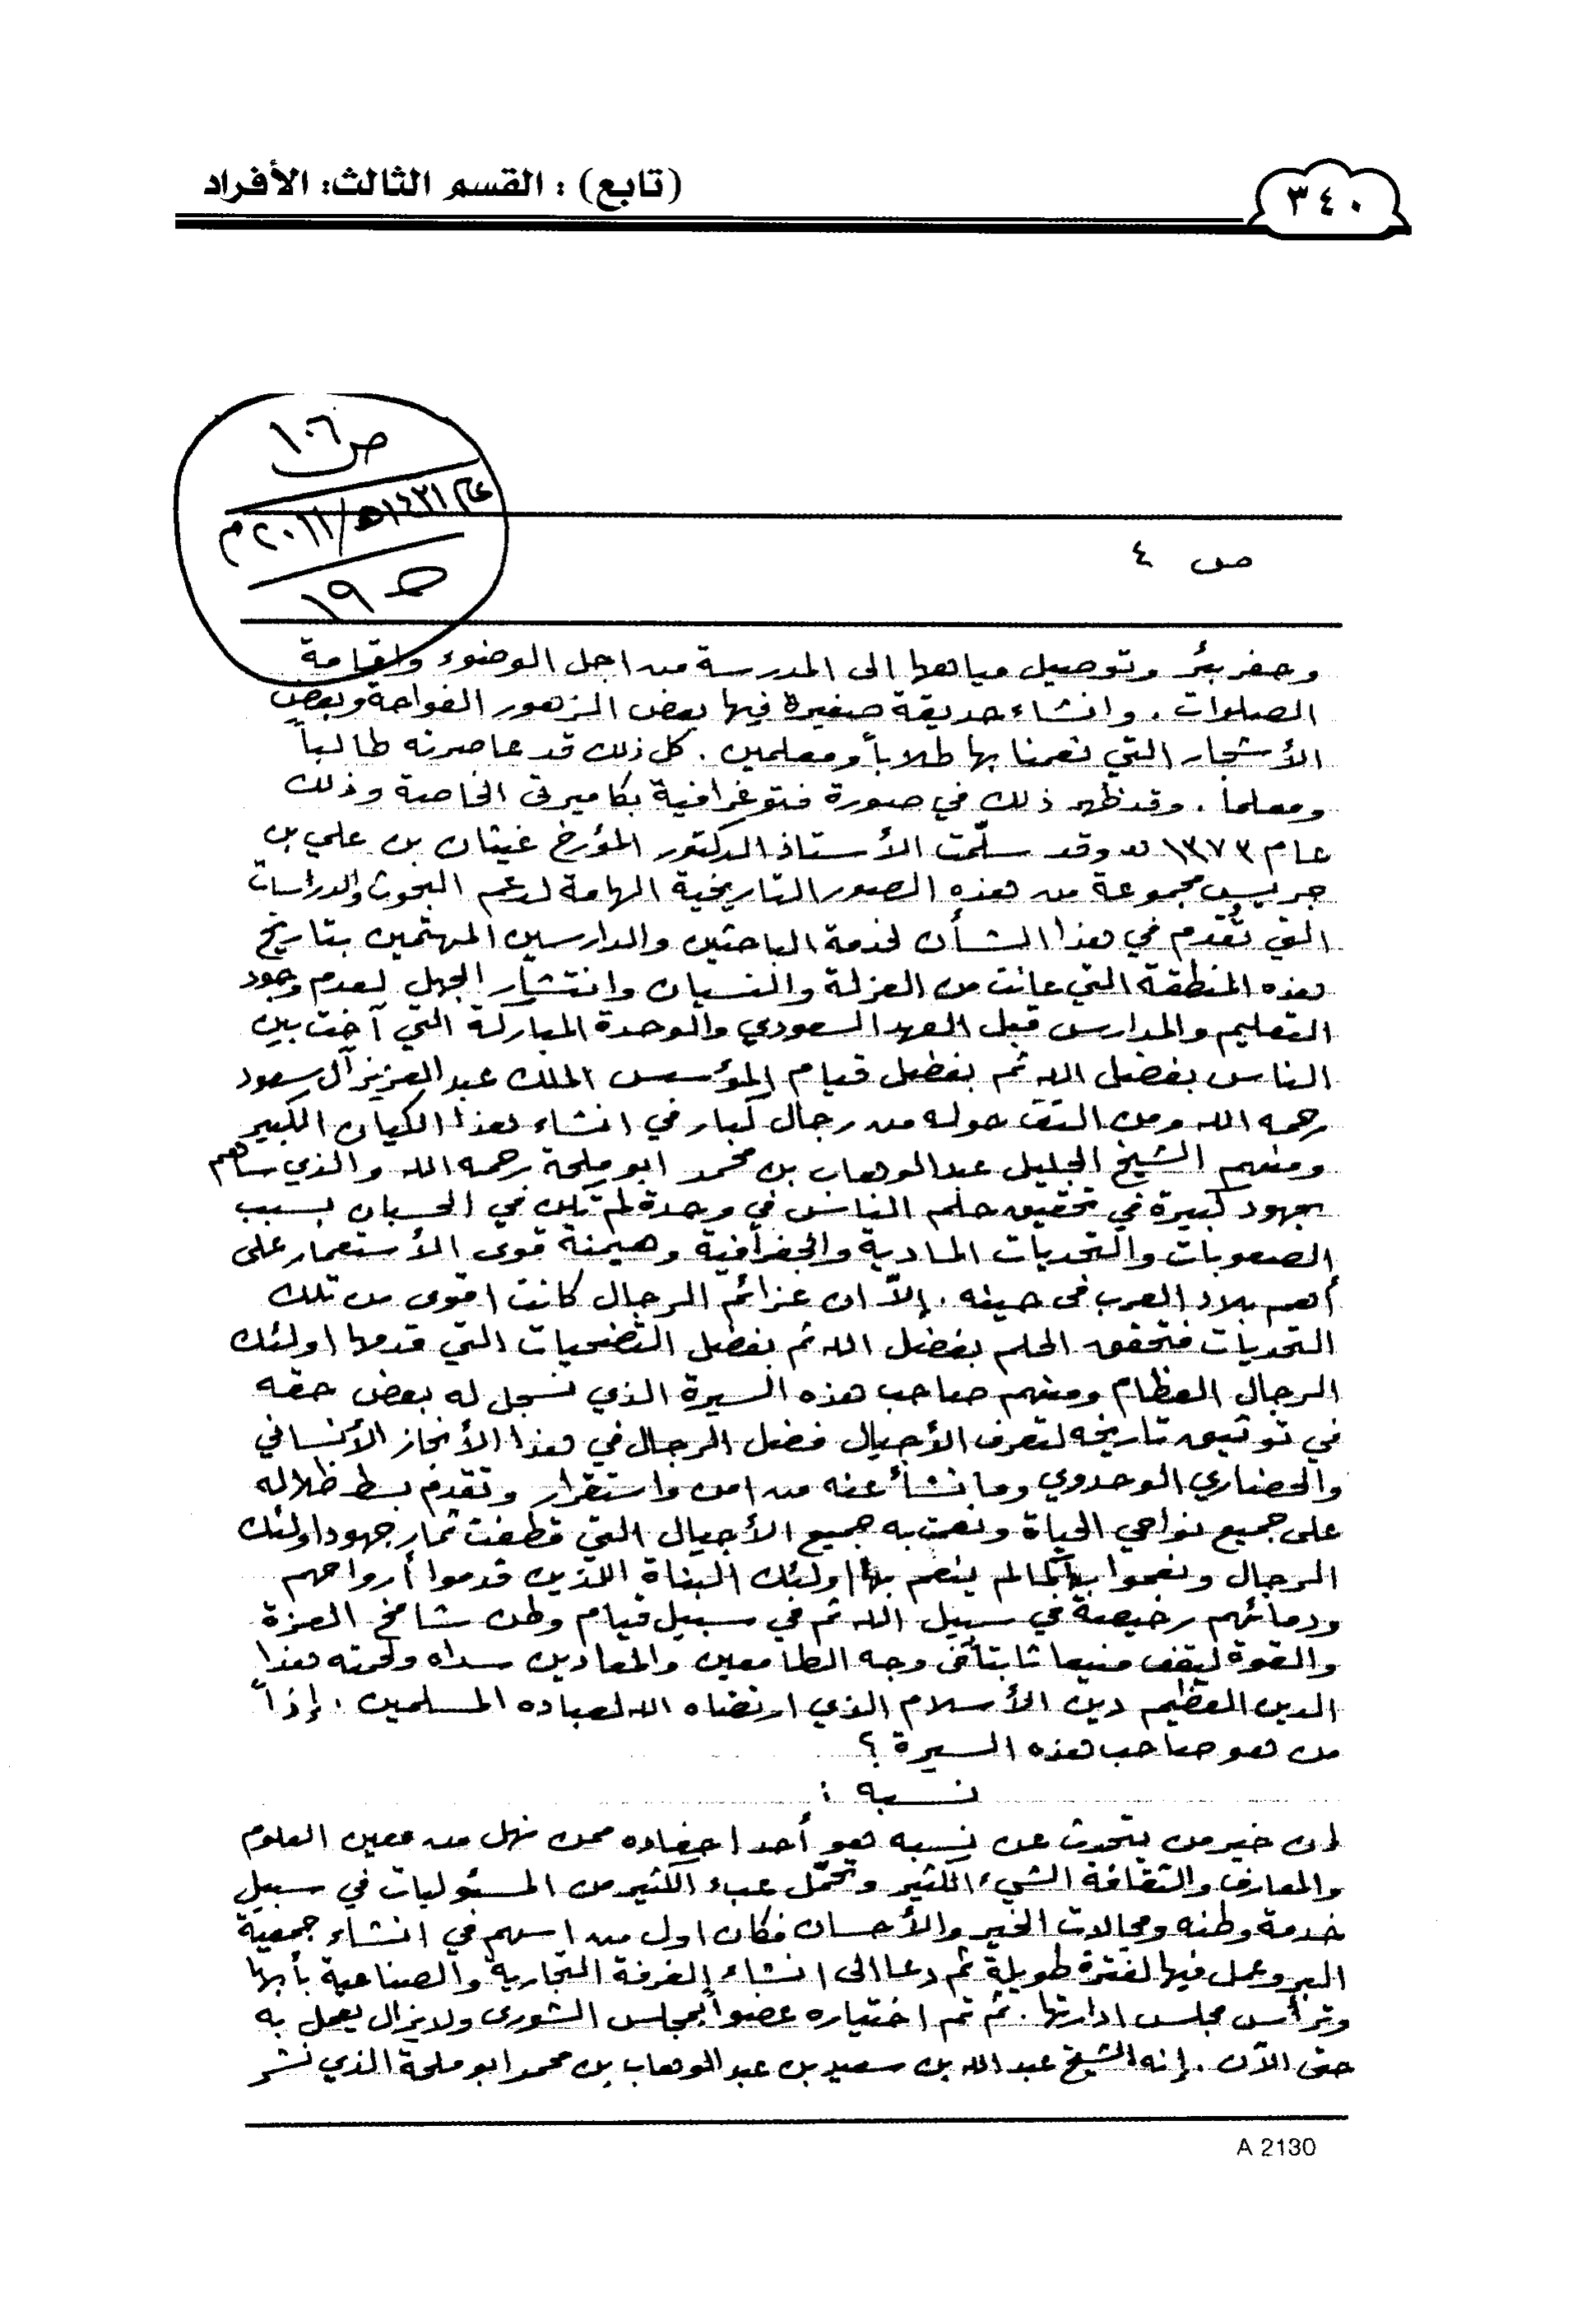 (تابع) : القسم الثالث: الأفراد
٣٤٠
ص ١٠٦
عام ١٤٣١هـ/٢٠١١م
ص ٤
وحفر بئر وتوصيل مياهها الى المدرسة من اجل الوضوء واقامة
الصلوات. وانشاء حديقة صغيرة فيها بعض الزهور الفواحة وبعض
الأشجار التي نعمنا بها طلاباً ومعلمين. كل ذلك قد عاصرته طالباً
ومعلماً. وقد ظهر ذلك في صورة فتوغرافية بكاميرتي الخاصة وذلك
عام ١٣٧٣ هـ وقد سلّمت الأستاذ الدكتور المؤرخ غيثان بن علي بن
جريس مجموعة من هذه الصور التاريخية الهامة لدعم البحوث والدراسات
التي تُقدم في هذا الشأن لخدمة الباحثين والدارسين المهتمين بتاريخ
هذه المنطقة التي عانت من العزلة والنسيان وانتشار الجهل لعدم وجود
التعليم والمدارس قبل العهد السعودي والوحدة المباركة التي آخت بين
الناس بفضل الله ثم بفضل قيام المؤسس الملك عبد العزيز آل سعود
رحمه الله ومن التف حوله من رجال كبار في انشاء هذا الكيان الكبير
ومنهم الشيخ الجليل عبد الوهاب بن محمد ابو ملحة رحمه الله والذي ساهم
بجهود كبيرة في تحقيق حلم الناس في وحدة لم تكن في الحسبان بسبب
الصعوبات والتحديات المادية والجغرافية وهيمنة قوى الأستعمار على
أهم بلاد العرب في حينه. إلاّ ان عزائم الرجال كانت اقوى من تلك
التحديات فتحقق الحلم بفضل الله ثم بفضل التضحيات التي قدمها اولئك
الرجال العظام ومنهم صاحب هذه السيرة الذي نسجل له بعض حقه
في توثيق تاريخه لتعرف الأجيال فضل الرجال في هذا الأنجاز الأنساني
والحضاري الوحدوي وما نشأ عنه من امن واستقرار وتقدم بسط ظلاله
على جميع نواحي الحياة ونعمت به جميع الأجيال التي قطفت ثمار جهود اولئك
الرجال ونعموا بما لم ينعم به اولئك البناة اللذين قدموا أرواحهم
ودمائهم رخيصة في سبيل الله ثم في سبيل قيام وطن شامخ العزة
والقوة ليقف منيعا ثابتاً في وجه الطامعين والمعادين سداه ولحمته هذا
الدين العظيم دين الأسلام الذي ارتضاه الله لعباده المسلمين. إذاً
من هو صاحب هذه السيرة ؟
نسبه :
إن خير من يتحدث عن نسبه هو أحد احفاده ممن نهل من معين العلوم
والمعارف والثقافة الشيء الكثير وتحمّل عبء الكثير من المسئوليات في سبيل
خدمة وطنه ومجالات الخير والأحسان فكان اول من اسهم في انشاء جمعية
البر وعمل فيها لفترة طويلة ثم دعا الى انشاء الغرفة التجارية والصناعية بأبها
وترأس مجلس ادارتها. ثم تم اختياره عضواً بمجلس الشورى ولا يزال يعمل به
حتى الآن. إنه الشيخ عبد الله بن سعيد بن عبد الوهاب بن محمد ابو ملحة الذي نشر
A 2130